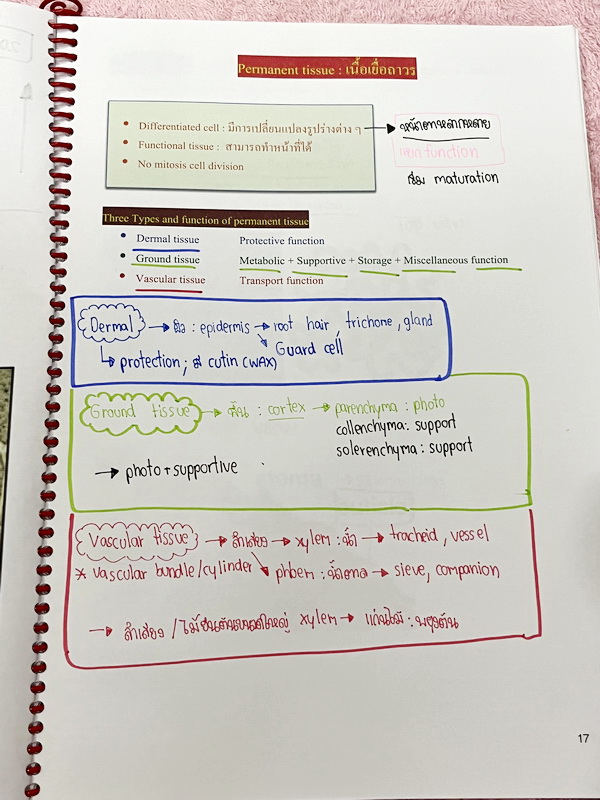 Permanent tissue : เนื้อเยื่อถาวร
Differentiated cell : มีการเปลี่ยนแปลงรูปร่างต่าง ๆ
หน้าตาหลากหลาย
Functional tissue : สามารถทำหน้าที่ได้
function
No mitosis cell division
maturation
Three Types and function of permanent tissue
Dermal tissue Protective function
Ground tissue Metabolic + Supportive + Storage + Miscellaneous function
Vascular tissue Transport function
Dermal → ผิว : epidermis → root hair, trichome, gland
Guard cell
protection ; มี cutin (WAX)
Ground tissue → พื้น : cortex → parenchyma : photo
collenchyma : support
solerenchyma : support
→ photo + supportive
Vascular tissue → ลำเลียง → xylem : น้ำ → tracheid, vessel
* vascular bundle/cylinder phloem : → sieve, companion
→ ลำเลียง / ไม้ยืนต้นขนาดใหญ่ xylem → แก่นไม้ : พยุงต้น
17